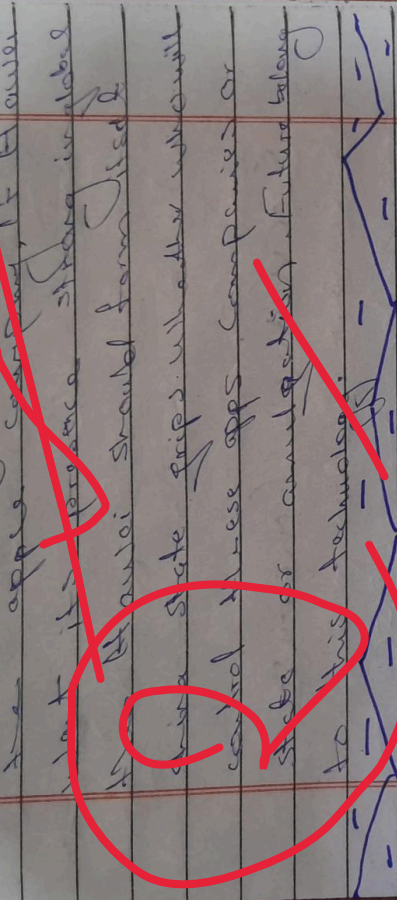 the apple company. If Hawei
want its presence strong in global
then Huawei should form itself
China State grips. Whether who will
control these apps Companies or
State or annulgation. Future belong
to this technology.